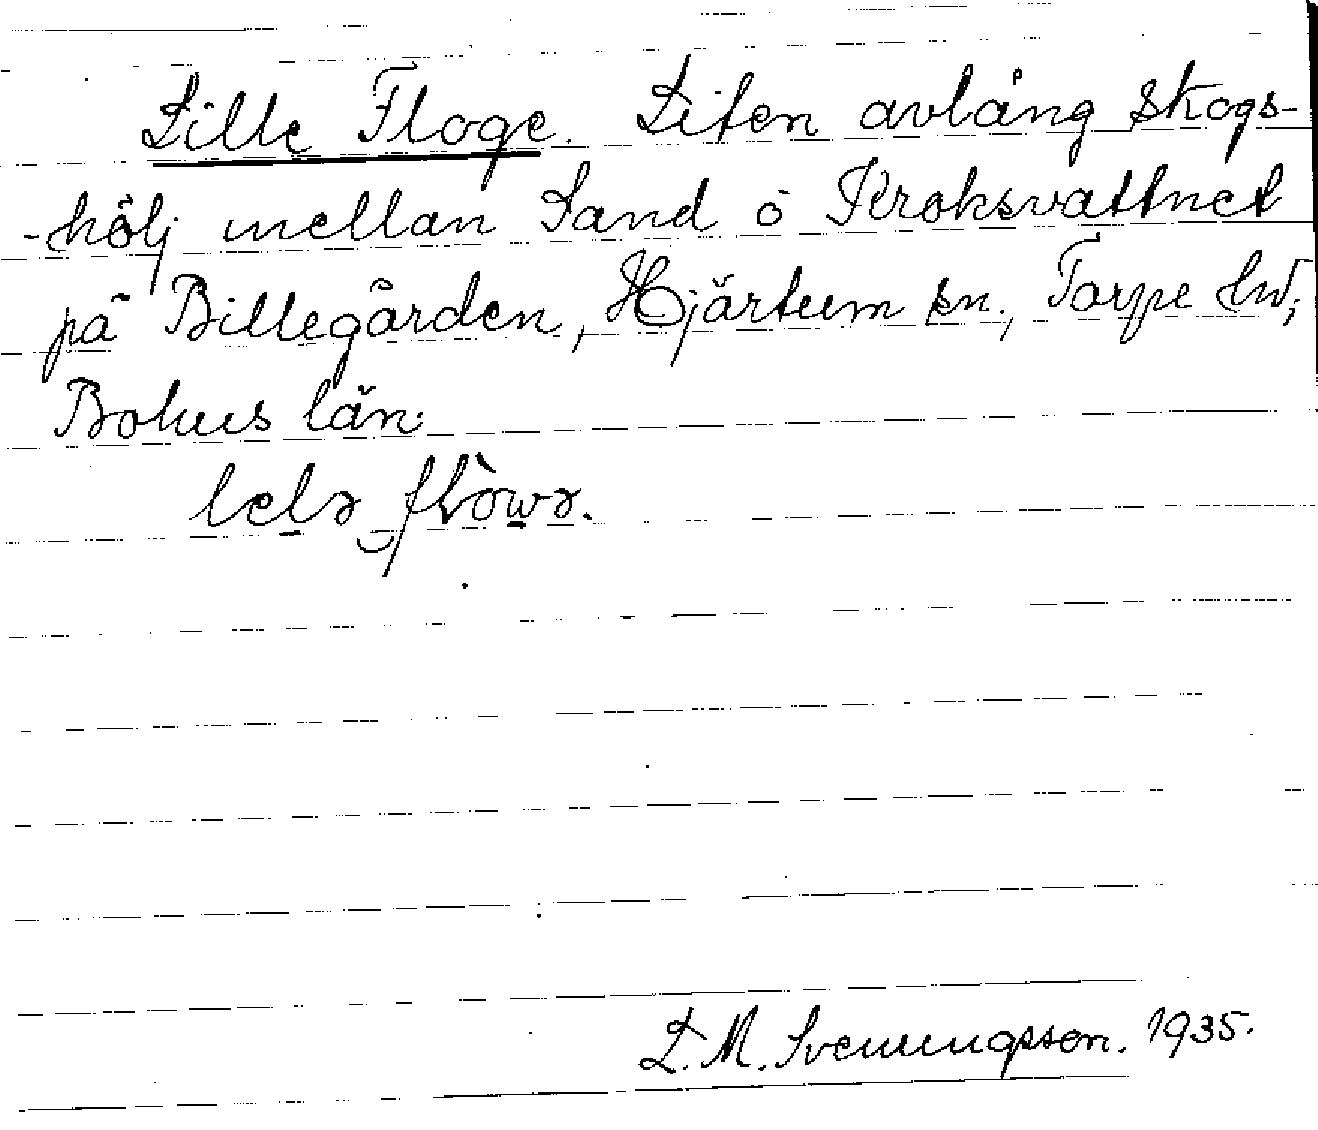 Lille Floge. Liten avlång skogs-
-hölj mellan Sand o Kroksvattnet
på Billegården, Hjärtum sn., Torpe hd;
Bohus län.
lelə flòwə.
L. M. Svenungsson. 1935.